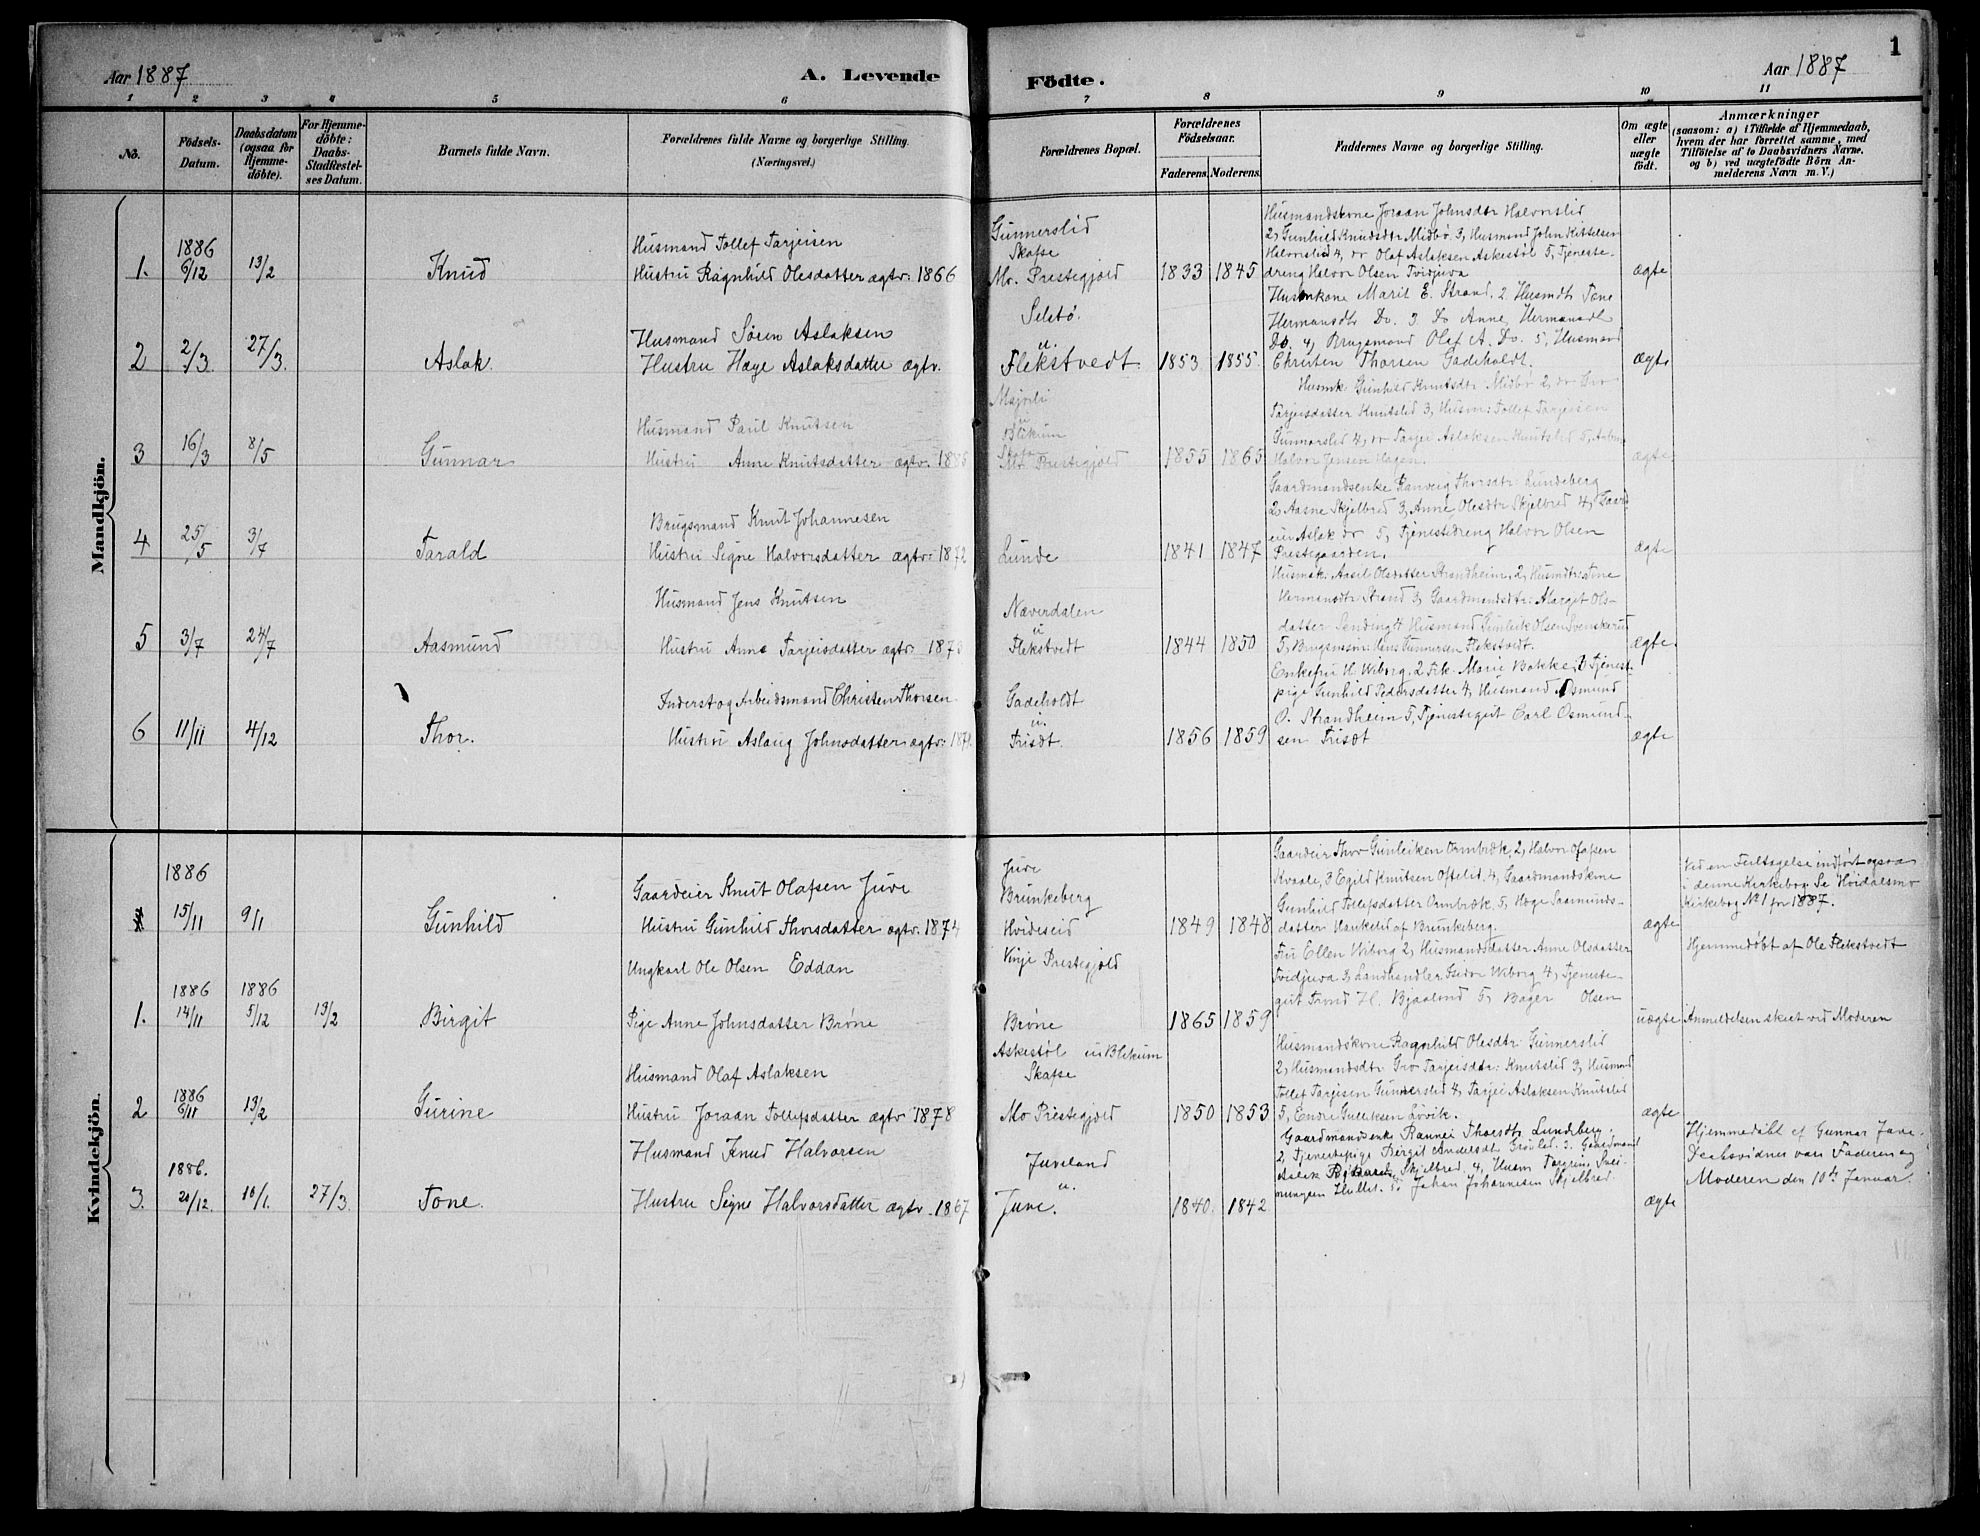 1
Aar 1887
A. Levende
Födte.
Aar 1887
1 2 3 4 5 6 7 8 9 10 11
No.
Födsels-
Datum.
Daabsdatum
(ogsaa for
Hjemme-
döbte).
For Hjemme-
döbte:
Daabs-
Stadfæstel-
ses Datum.
Barnets fulde Navn.
Forældrenes fulde Navne og borgerlige Stilling.
(Næringsvei.)
Forældrenes Bopæl.
Forældrenes
Födselsaar.
Faderens. Moderens.
Faddernes Navne og borgerlige Stilling.
Om ægte
eller
uægte
födt.
Anmærkninger
(saasom: a) i Tilfælde af Hjemmedaab,
hvem der har forrettet samme, med
Tilföielse af to Daabsvidners Navne,
og b) ved uægtefödte Börn An-
melderens Navn m. V.)
Mandkjön.
1.
1886
6/12
13/2
Knud
Husmand Tollef Tarjeisen
Hustru Ragnhild Olesdatter ægtv. 1866
Gunnerslid
Skafse
Mo. Prestegjeld
1833 1845
Husmandskone Joraan Johnsdtr Halvorslid
2, Gunhild Knudsdtr Midbø 3, Husmand John Kittelsen
Halvorslid 4, do Olaf Aslaksen Askestøl 5, Tjeneste-
dreng Halvor Olsen Tvidjuva
ægte
2
2/3.
27/3.
Aslak.
Husmand Søren Aslaksen
Hustru Hæge Aslaksdatter ægtv.
Seletø.
u.
Flekstvedt.
1853 1855.
Husmkone Marit E. Strand. 2 Husmdt. Tone
Hermansdt. Do. 3. Do Anne Hermansdt
Do. 4, Brugsmand Olaf A. Do. 5, Husmand
Christen Thorsen Gadeholdt.
ægte
3
16/3
8/5
Gunnar
Husmand Paul Knutsen
Hustru Anne Knutsdatter ægtv. 1885
u
Blikum
Mo Prestegjeld
1855 1865
Husmk. Gunhild Knutsdtr Midbø 2, do Gro
Tarjeisdatter Knutslid 3, Husm: Tollef Tarjeisen
Gunnarslid 4, do Tarjei Aslaksen Knutslid 5,
Halvor Jensen Hagen.
ægte
4
25/5
3/7
Tarald
Brugsmand Knut Johannesen
Hustru Signe Halvorsdatter ægtv: 1872
Lunde
1841 1847
Gaardmandsenke Ranveig Thorsdtr: Lundeberg
2, Aasne Skjelbred 3, Anne Olesdtr Skjelbred 4, Gaard-
eier Aslak do 5, Tjenestedreng Halvor Olsen
Prestegaarden.
ægte
5
3/7
24/7
Aasmund
Husmand Jens Knutsen
Hustru Anne Tarjeisdatter ægtv. 1873
Næverdalen
u
Flekstvedt
1844 1850
Husmsk. Aasil Olsdatter Strandheim, 2, Husmdtr: Tone
Hermansdtr Strand 3, Gaardmandsdtr: Marget Ols-
datter Sending 4 Husmand Gunleik Olsen Svenskerud
5, Brugsmson: Hans Gunnersen Flekstvedt.
ægte.
6
11/11
4/12
Thor.
Inderst og Arbeidsmand Christen Thorsen
Hustru Aslaug Johnsdatter ægtv:
Gadeholdt
u.
Trisæt.
1856 1859
Enkefru H. Wiborg, 2 Frk. Marie Bakke, 3 Tjenest-
pige Gunhild Pedersdatter 4, Husmand Osmund
O. Strandheim 5, Tjenestegut Carl Osmund-
sen Trisæt
ægte
Kvindekjön.
1886
15/11
9/1
Gunhild
Gaardeier Knut Olafsen Juve
Hustru Gunhild Thorsdatter ægtv. 1874
Juve
Brunkeberg
Hvideseid
1849 1848
Gaardeier Thor Gunleiksen Ormbræk, 2, Halvor Olafsen
Kvaale, 3 Egild Knutsen Oftelid, 4, Gaardmandskone
Gunhild Tollefsdatter Ormbræk, 5, Hæge Saamunds-
datter Haukelid af Brunkeberg.
ægte
Ved en Feiltagelse indført ogsaa
i denne Kirkebog. Se Hvidesmo
Kirkebog No 1 for 1887.
1.
1886
14/11
1886
5/12
13/2
Birgit
Ungkarl Ole Olsen Eddan
Pige Anne Johnsdatter Brøne
Vinje Prestegjeld
Brøne
1865 1859
Fru Ellen Wiborg 2, Husmandsdatter Anne Olsdatter
Tvidjuva 3, Landhandler Isidor Wiborg 4, Tjeneste-
gut Trond H. Bjaaland 5, Bager Olsen
uægte
Hjemmedøbt af Ole Flekstvedt
Anmeldelsen skeet ved Moderen
2
1886
6/11
13/2
Gurine
Husmand Olaf Aslaksen
Hustru Joraan Tollefsdatter ægtv 1878
Askestøl u Blikum
Skafse
Mo Prestegjeld
1850 1853
Husmandskone Ragnhild Olesdtr: Gunnerslid
2, Husmandsdtr: Gro Tarjeisdtr: Knutslid 3, Husmand
Tollef Tarjeisen Gunnerslid 4, Tarjei Aslaksen Knutslid
5, Endre Gulliksen Løvik.
ægte
3.
1886.
20/12.
16/1.
27/3.
Tone.
Husmand Knud Halvorsen
Hustru Signe Halvorsdatter ægtv. 1867
Juveland
u.
Juve.
1840. 1842
Gaardmandsenke Rannei Thorsdt. Lundeberg.
2, Tjenestepige Bergit Andersdt. 3. Gaardmand
Aslak Skjelbred. 4, Husm Torgrim Svei-
nungsen Hullet. 5, Johan Johannesen Skjelbred.
ægte
Hjemmedøbt af Gunnar Juve.
Daabsvidner vare Faderen og
Moderen den 10de Januar.